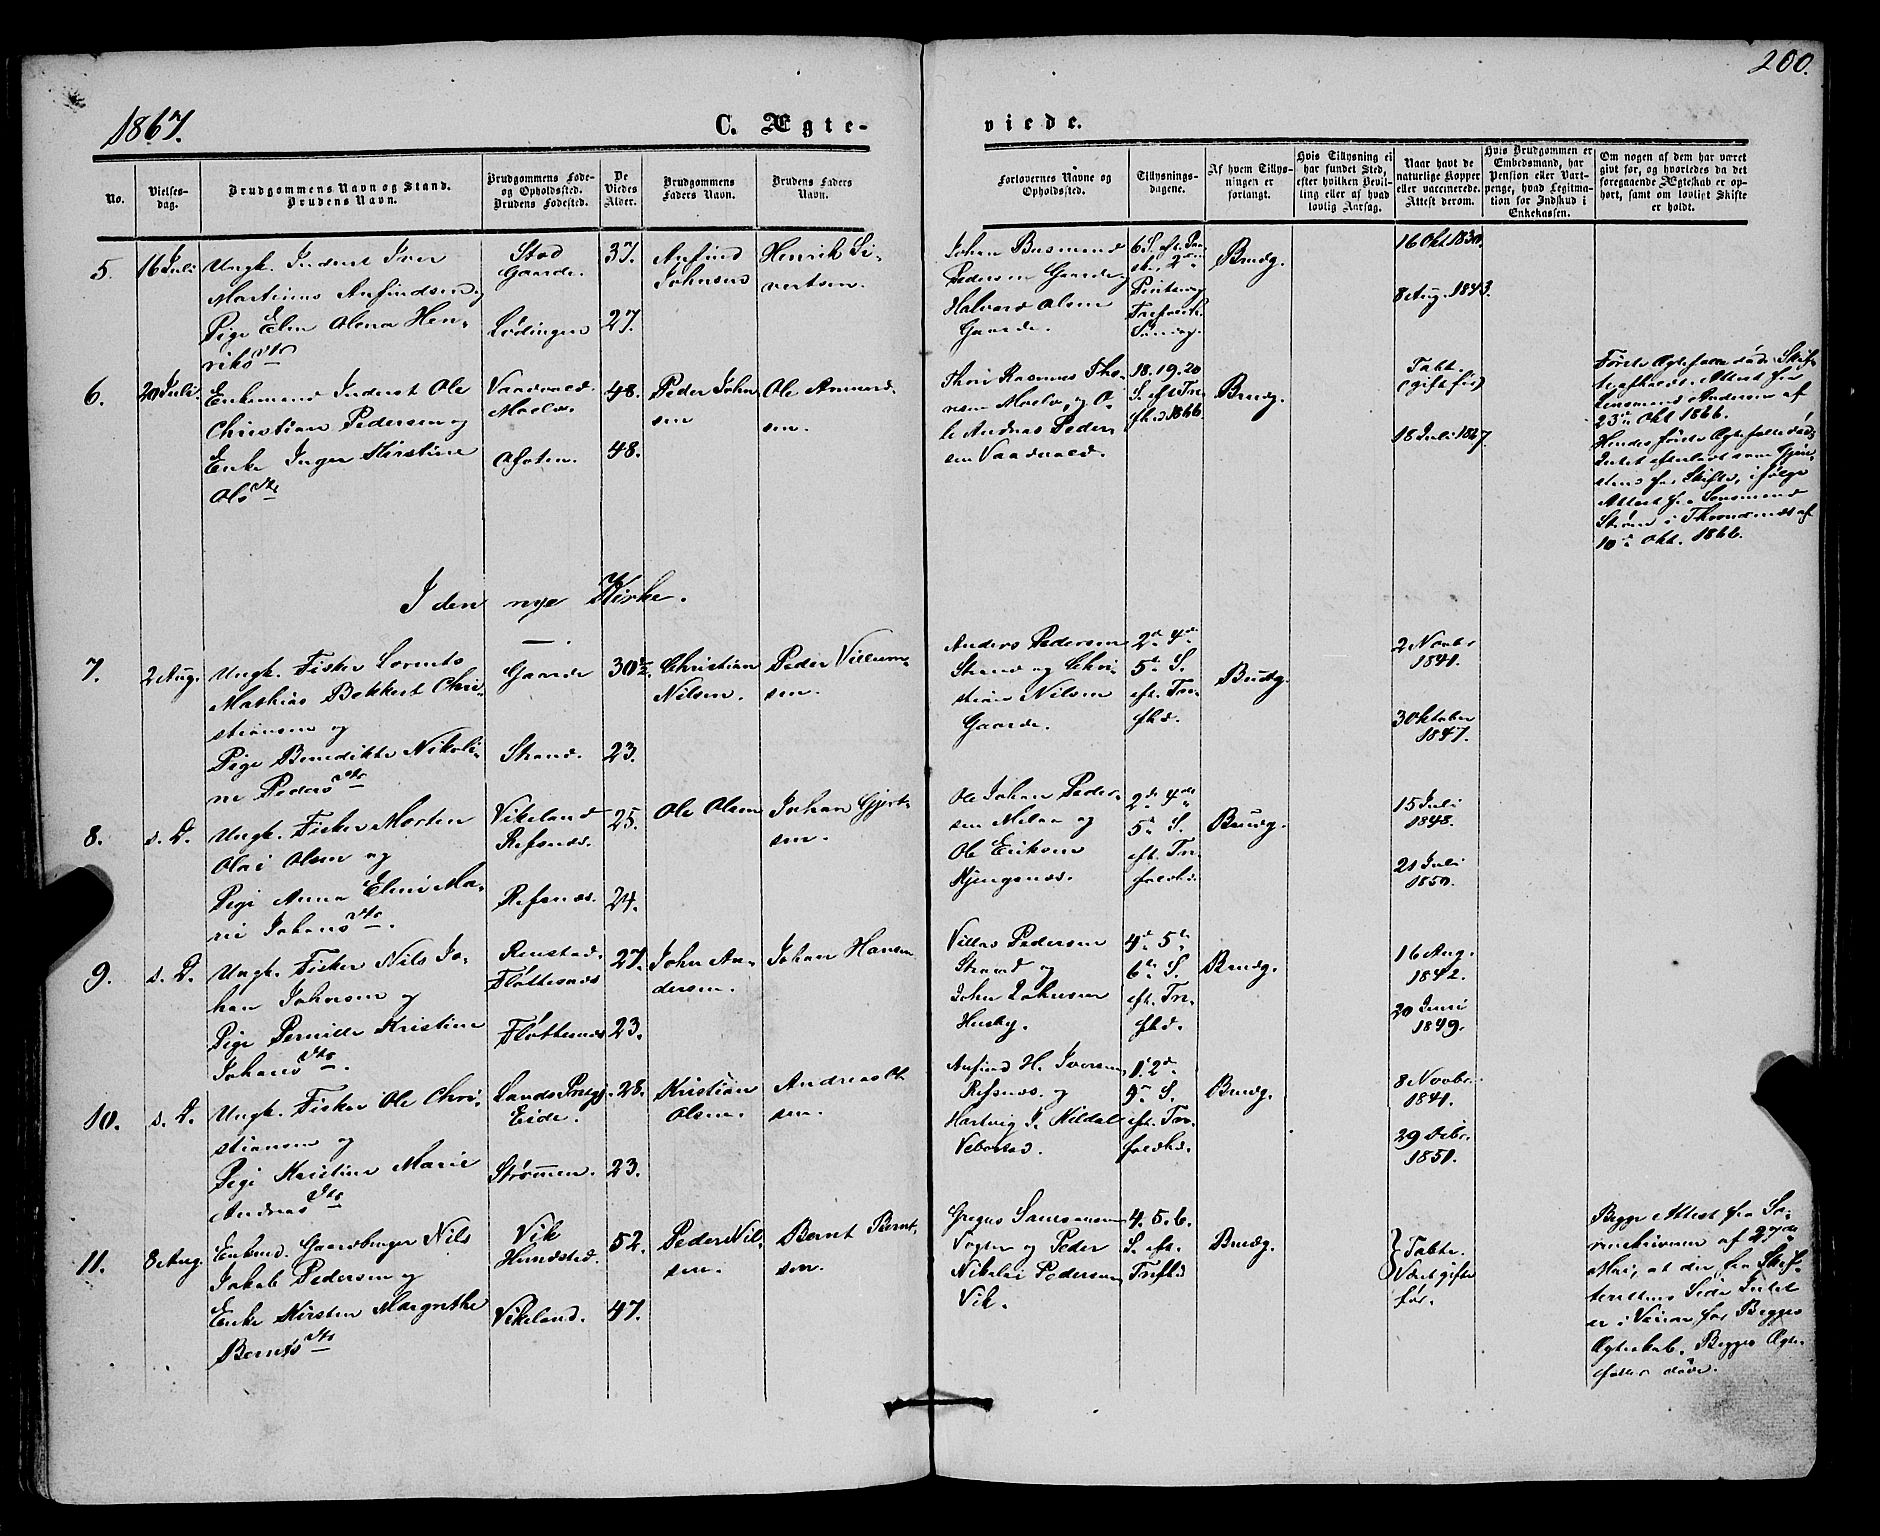 200.
1867.
C. Ægte-
viede.
No.
Vielses-
dag.
Brudgommens Navn og Stand.
Brudens Navn.
Brudgommens Føde-
og Opholdssted.
Brudens Fødested.
De
Viedes
Alder.
Brudgommens
Faders Navn.
Brudens Faders
Navn.
Forlovernes Navne og
Opholdssted.
Tillysnings-
dagene.
Af hvem Tillys-
ningen er
forlangt.
Hvis Tillysning ei
har fundet Sted,
efter hvilken Bevil-
ling eller af hvad
lovlig Aarsag.
Naar havt de
naturlige Kopper
eller vaccinerede.
Attest derom.
Hvis Brudgommen er
Embedsmand, har
Pension eller Vart-
penge, hvad Legitima-
tion for Indskud i
Enkekassen.
Om nogen af dem har været
gift før, og hvorledes da det
foregaaende Ægteskab er op-
hørt, samt om lovligt Skifte
er holdt.
5.
16 Juli
Ungk. Inderst Iver
Martinus Anfindsen og
Pige Elen Olena Hen-
riksdtr
Stod
Gaarde.
Lødingen
37.
27.
Anfind
Johnsen
Henrik Si-
vertsen.
Johan
Pedersen Gaarde,
Halvard Olsen
Gaarde.
6 S. eft. Paa-
ske, 2den
Pintsedag
Trefoldh.
Søndag.
Brudg.
16 Okt 1830.
8 Aug. 1843.
6.
20 Juli.
Enkemand Inderst Ole
Christian Pedersen og
Enke Inger Kirstine
Olsdtr
Vaadvold.
Moelv.
Ofoten.
48.
48.
Peder John
sen
Ole Amund-
sen.
Thore Rasmus Tho-
resen Moelv, og O-
le Andreas Peder
sen Vaadvold.
18. 19. 20
S. eft Tre
fhd 1866.
Brudg.
Tabt.
(gift før)
18 Juli 1827.
Første Ægtefælle død. Skif-
te afholdt. Attest fra
Lensmand Andersen af
23de Okt 1866.
Hendes første Ægtefælle død,
Intet efterladt som Gjen-
stand for Skifte, i følge
Attest fra Lensmand
Strøm i Throndenæs af
10de Okt. 1866.
I den nye Kirke.
7.
2 Aug.
Ungk. Fisker Lorents
Mathias Bokkert Chri-
stiansen og
Pige Benedikte Nikoli-
ne Pedersdtr
Gaarde
Strand.
30½.
23.
Christian
Nilsen.
Peder Villum-
sen.
Anders Pedersen
Strand og Chri-
stian Nilsen
Gaarde.
2de 4de
5te S.
eft. Tre-
fhd.
Brudg.
2 Novbr
1841.
3 Oktober
1847.
8.
s. D.
Ungk. Fisker Morten
Olai Olsen og
Pige Anna Elen Ma-
rie Johansdtr.
Vikeland
Refsnæs.
Refsnæs.
25.
24.
Ole Olsen
Johan Gjert-
sen.
Ole Johan Peder-
sen Melaa og
Ole Eriksen
Kjengsnæs.
2de 4de
5te S.
eft. Tre-
foldhd.
Brudg.
15 Juli
1848.
21 Juli
1850.
9.
s. D.
Ungk. Fisker Nils Jo-
han Johnsen og
Pige Pernille Kristine
Johansdtr.
Renstad.
Fløttesnæs
Fløttesnæs
27.
23.
John An-
dersen.
Johan Hansen
Villas Pedersen
Strand og
John Johnsen
Husby.
4de 5te
6te S.
eft. Tre-
fhd.
Brudg.
16 Aug.
1842.
20 Juni
1849.
10.
s. D.
Ungk. Fisker Ole Chri-
stiansen og
Pige Kristine Marie
Andreasdtr
Sands Præg.
Eide.
Strømmen.
28.
23.
Kristian
Olsen.
Andreas Ol
sen.
Anfind H. Iversen
Refsnæs. og
Hartvig J. Kildal
1ste 2de
9de S.
eft. Tre-
foldhd.
Brudg.
8 Novbr.
1841.
29 Debr.
1850.
11.
8 Aug.
Enkmd. Gaardbruger Nils
Jakob Pedersen og
Enke Kirsten Margrethe
Berntsdtr
Vik
Hundstad.
Vikeland.
52.
47.
Peder Nil-
sen.
Bernt Bernt-
sen.
Gregus Simonsen
Vogter og Peder
Nikolai Pedersen
Vik.
4. 5. 6.
S. eft.
Trefhd
Brudg.
Tabte.
Været gifte
før.
Begge Attest fra So-
renskriveren af 27de
Mai, at der fra Skif-
terettens Side Intet
er i Veien for Begges
Ægteskab. Begges Ægte-
fæller døde.